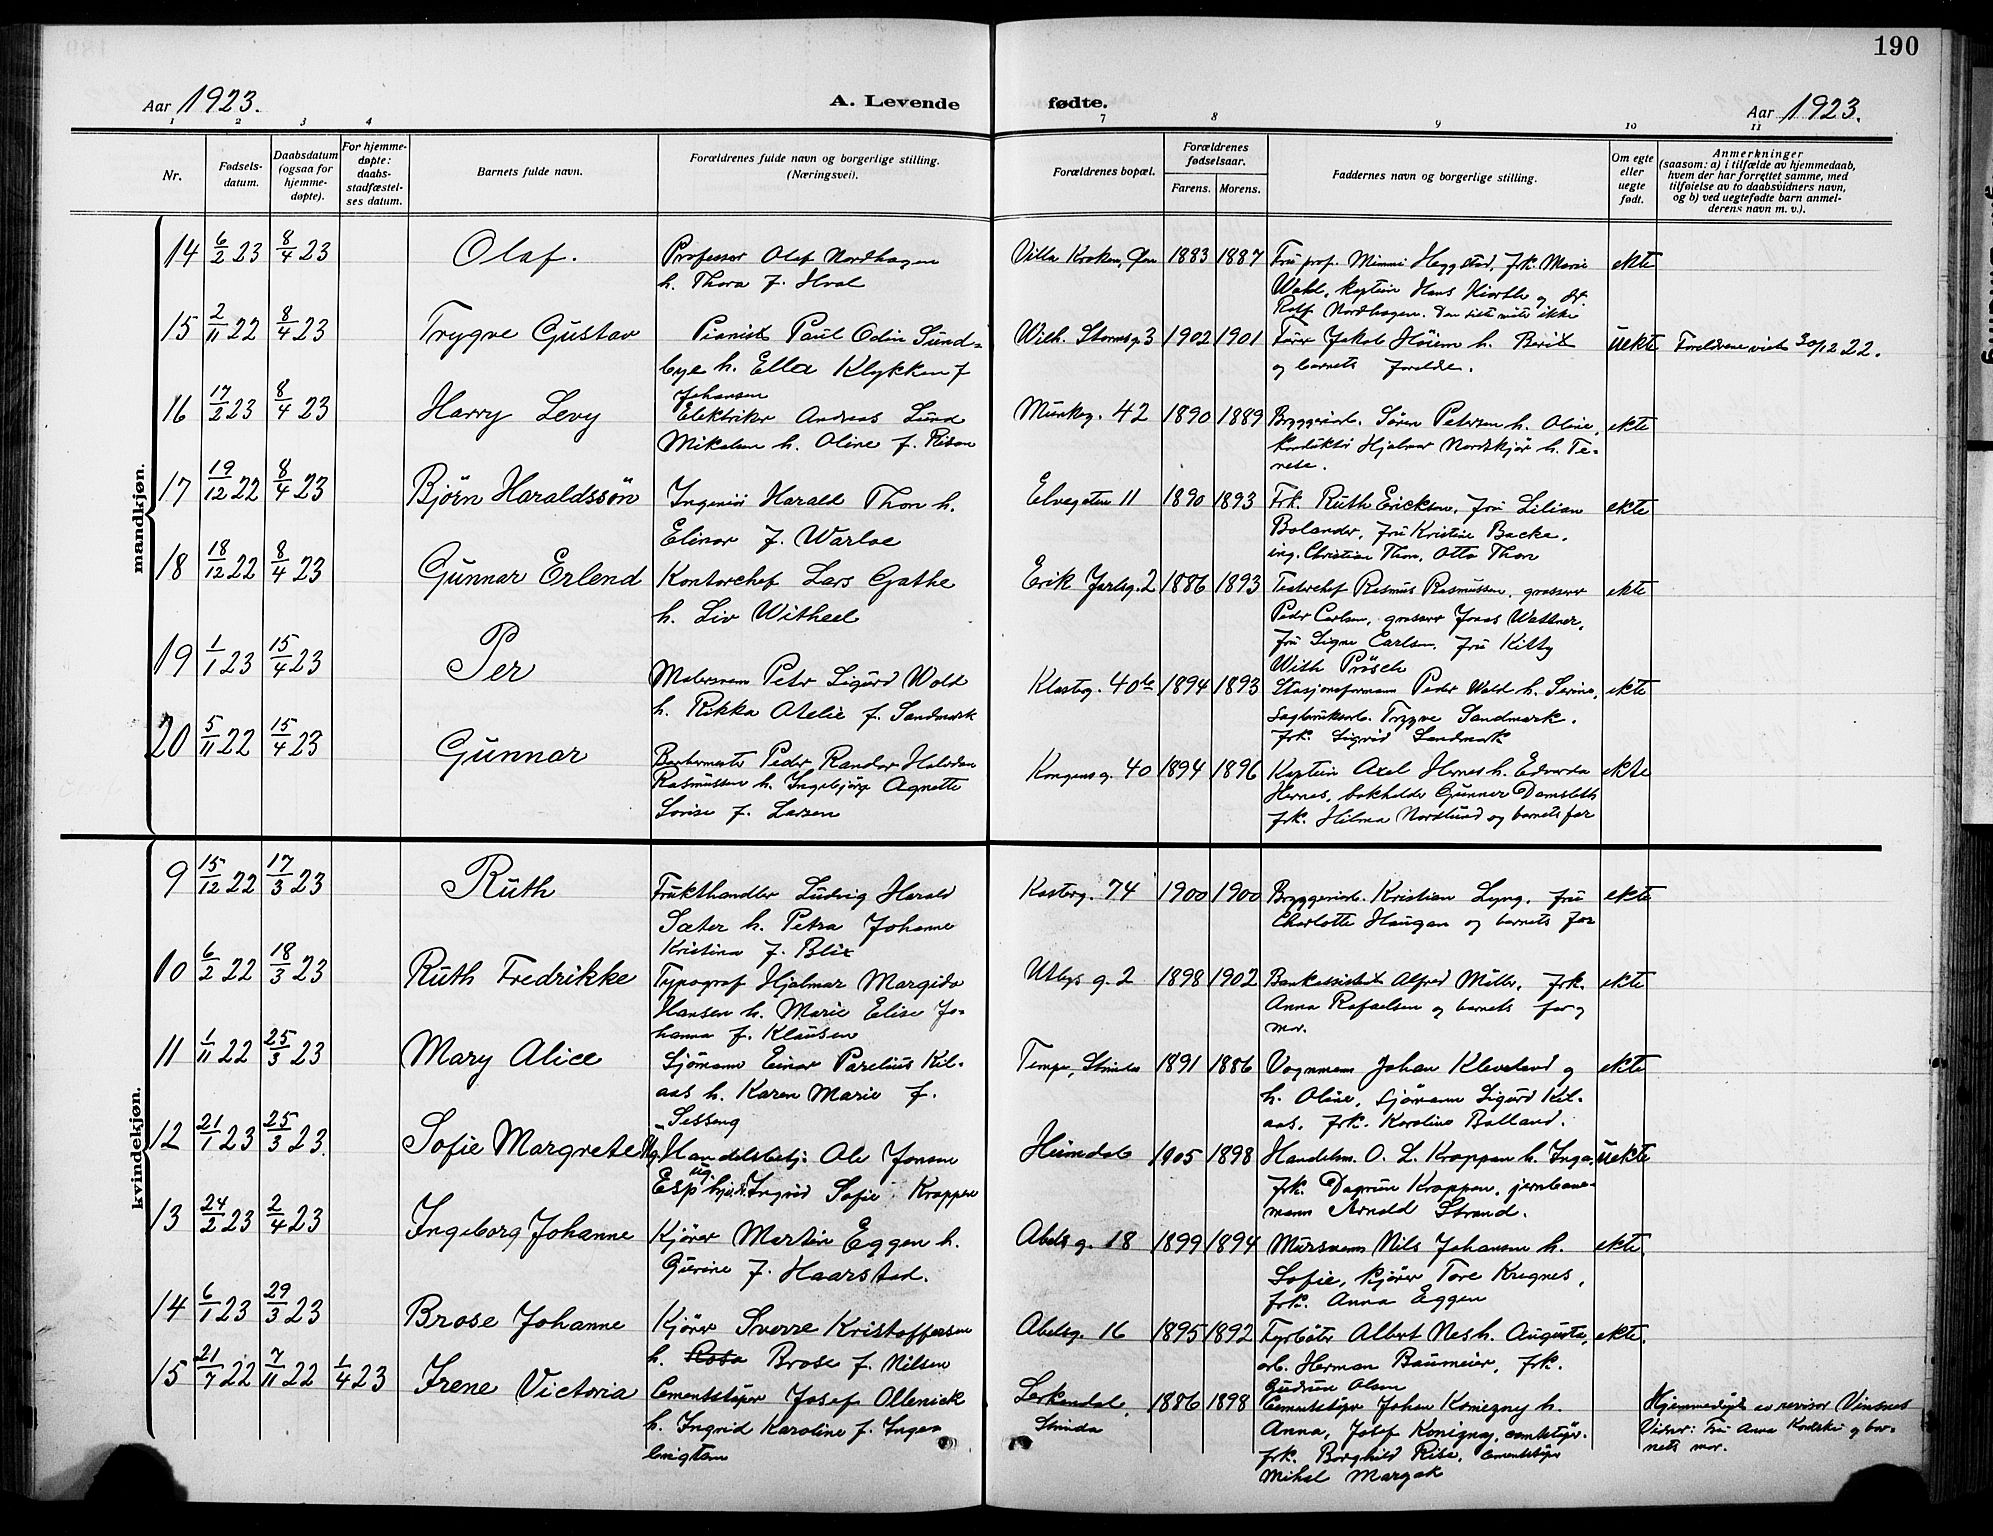 190
Aar 1923. A. Levende fødte. Aar 1923.
1 2 3 4 7 8 9 10 11
Nr.
Fødsels-
datum.
Daabsdatum
(ogsaa for
hjemme-
døpte).
For hjemme-
døpte:
daabs-
stadfæstel-
ses datum.
Barnets fulde navn.
Forældrenes fulde navn og borgerlige stilling.
(Næringsvei).
Forældrenes bopæl.
Forældrenes
fødselsaar.
Farens. Morens.
Faddernes navn og borgerlige stilling.
Om egte
eller
uegte
født.
Anmerkninger
(saasom: a) i tilfælde av hjemmedaab,
hvem der har forrettet samme, med
tilføielse av to daabsvidners navn,
og b) ved uegtefødte barn anmel-
derens navn m. v.).
mandkjøn.
14 6/2 23 8/4 23 Olaf.
Professor Olaf Nordhagen
h. Thora f. Hval
Villa Kroken, 1883 1887
Fru prof. Mimmi Heggstad, frk. Marie
Wahl, kaptein Hans Hiorth og
Rolf Nordhagen. Den siste møtte ikke
ekte
15 2/11 22 8/4 23 Trygve Gustav
Pianist Paul Odin Sund-
bye h. Ella Klykken f.
Johansen
Wilh. Stormsg. 3 1902 1901
Jakob Høiem h. Berit
og barnets foreldre.
uekte Foreldrene viet 30/12 22.
16 17/2 23 8/4 23 Harry Levy
Elektriker Andreas Lund
Mikalsen h. Oline f. Risan
Munkeg. 42 1890 1889
Bryggeriarb. Søren Petersen h. Oline,
konduktør Hjalmar Nordskjør h. Te-
rese.
ekte
17 19/12 22 8/4 23 Bjørn Haraldssøn
Ingeniør Harald Thon h.
Elinor f. Warloe
Elvegaten 11 1890 1893
Frk. Ruth Ericksen, fru Lilian
Bolander, fru Kristine Backe,
ing. Christian Thon, Otto Thon
ekte
18 18/12 22 8/4 23 Gunnar Erlend
Kontorchef Lars Gathe
h. Liv Witheel
Erik Jarlsg. 2 1886 1893
Teaterchef Rasmus Rasmussen, grosserer
Peder Carlsen, grosserer Jonas Wattner,
fru Signe Carlsen, fru Kitty
With Prøsch
ekte
19 1/1 23 15/4 23 Per
Malersvenn Peter Sigurd Wold
h. Rikka Atelie f. Sandmark
Klosterg. 40b 1894 1893
Stasjonsformann Peder Wold h. Serine,
Sagbruksarb. Trygve Sandmark,
frk. Sigrid Sandmark
ekte
20 5/11 22 15/4 23 Gunnar
Barbermester Peder Randor Halvdan
Rasmussen h. Ingebjørg Agnette
Lovise f. Larsen
Kongensg. 40 1894 1896
Kaptein Axel Hernes h. Edvarda
Hernes, bokholder Gunnar Damsleth
frk. Hilma Nordlund og barnets far
ekte
kvindekjøn.
9 15/12 22 17/3 23 Ruth
Frukthandler Ludvig Harald
Sæter h. Petra Johanne
Kristina f. Blix
Kasterg. 74 1900 1900
Bryggeriarb. Kristian Lyng, fru
Charlotte Haugan og barnets far
ekte
10 6/2 22 18/3 23 Ruth Fredrikke
Typograf Hjalmar Margido
Hansen h. Marie Elise Jo-
hanna f. Klausen
Utbys g. 2 1898 1902
Bankassistent Alfred Møller, frk.
Anna Rafaelsen og barnets far og
mor.
ekte
11 1/11 22 25/3 23 Mary Alice
Sjømann Einar Parelius Kil-
aas h. Karen Marie f.
Sesseng
Tempe, Strinda 1891 1886
Vognmann Johan Kleveland og
h. Oline, sjømann Sigurd Kil-
aas, frk. Karoline Balland.
ekte
12 21/1 23 25/3 23 Sofie Margrete
Ug. Handelsbetj. Ole Jonsen
Esp og pike Ingrid Sofie Kroppen
Heimdal 1905 1898
Handelsm. O. L. Kroppen h. Inga,
frk. Dagrun Kroppen, jernbane-
mann Arnold Strand.
uekte
13 24/2 23 2/4 23 Ingeborg Johanne
Kjører Martin Eggen h.
Gurine f. Haarstad.
Abels g. 18 1899 1894
Mursvenn Nils Johansen h.
Sofie, kjører Tore Kregnes,
frk. Anna Eggen
ekte.
14 6/1 23 29/3 23 Brose Johanne
Kjører Sverre Kristoffersen
h. Rosa Brose f. Nilsen
Abelsg. 16 1895 1892
Fyrbøter Albert Nes h. Augusta,
arb. Herman Baumeier, frk.
Gudrun Olsen
ekte.
15 21/7 22 7/11 22 1/4 23 Irene Victoria
Cementstøper Josef Ollenick
h. Ingrid Karoline f. Inge-
brigtsen
Lerkendal,
Strinda
1886 1898
Cementstøper Johan Koniegny h.
Anna, Josef Koniegny, cementstøper.
frk. Borghild Rise, cementstøper
Mihal Margak
Hjemmedøpt av revisor Vinsnes
Vidner: Fru Anna og bar-
nets mor.